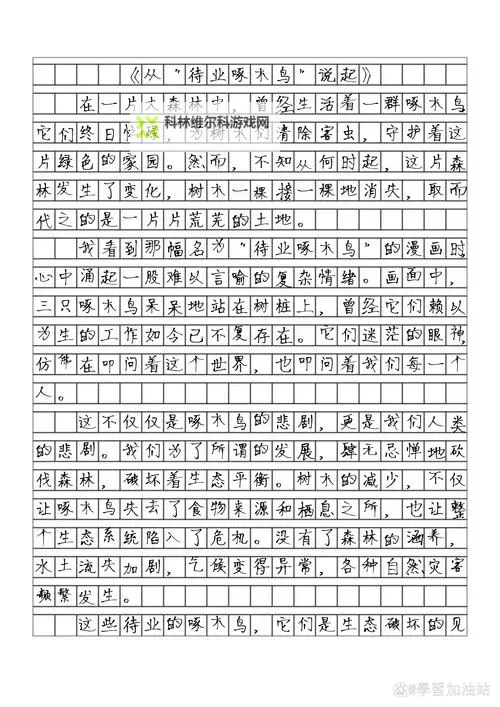 《从“待业啄木鸟”说起》
在一片大森林中，曾经生活着一群啄木鸟
科林维尔科游戏网
它们终日忙碌，为树木们清除害虫，守护着这
片绿色的家园。然而，不知从何时起，这片森
林发生了变化，树木一棵接一棵地消失，取而
代之的是一片片荒芜的土地。
我看到那幅名为“待业啄木鸟”的漫画时，
心中涌起一股难以言喻的复杂情绪。画面中，
三只啄木鸟呆呆地站在树桩上，曾经它们赖以
为生的工作如今已不复存在。它们迷茫的眼神，
仿佛在叩问着这个世界，也叩问着我们每一个
人。
这不仅仅是啄木鸟的悲剧，更是我们人类
的悲剧。我们为了所谓的发展，肆无忌惮地砍
伐森林，破坏着生态平衡。树木的减少，不仅
让啄木鸟失去了食物来源和栖息之所，也让整
个生态系统陷入了危机。没有了森林的涵养，
水土流失加剧，气候变得异常，各种自然灾害
频繁发生。
这些待业的啄木鸟，它们是生态破坏的见
@學習加油站